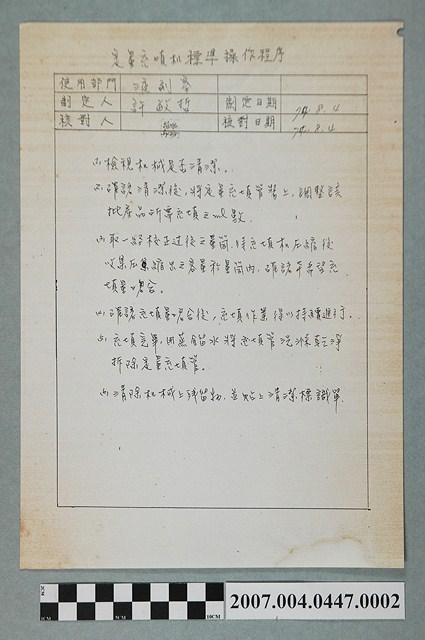 定量充填机標準操作程序
使用部門 液剂音
制定人 許敏哲 制定日期 74.8.4
核對人 核對日期 74.8.4
(1)檢視机械是否清潔。
(2)確認清潔後,將定量充填管裝上,調整該
批產品所需充填之ml數.
(3)取一経校正过後之量筒,待充填机压縮後
收集压縮出之容量於量筒內,確認
填量吻合。
(4)確認充填量吻合後,充填作業得以持續進行.
(5)充填完畢,用蒸餾水將充填管洗滌乾淨
拆除定量充填管。
(6)清除机械上残留物,並貼上清潔標識單.
10CM
2007.004.0447.0002